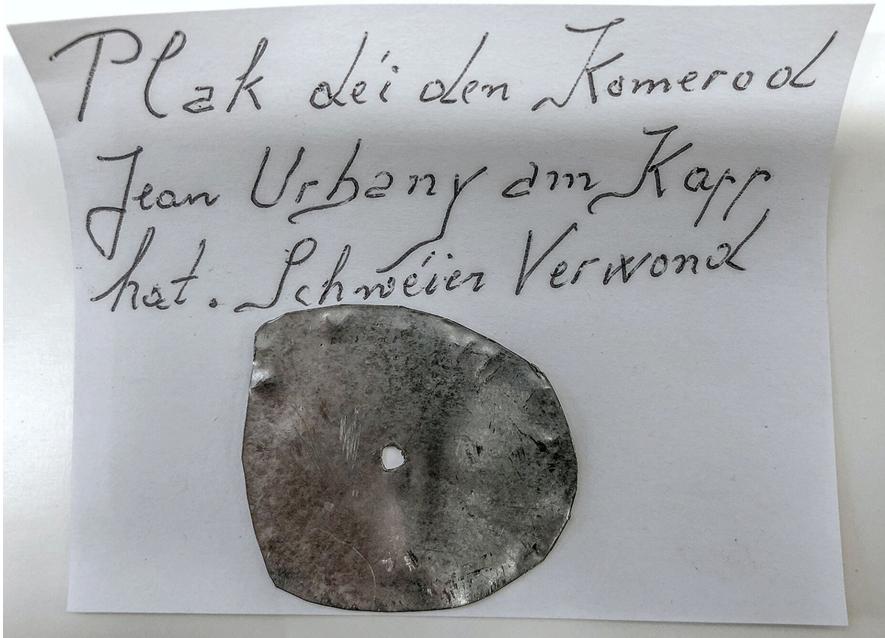 Plak déi den Komerod
Jean Urbany am Kapp
hat. Schwéier Verwond